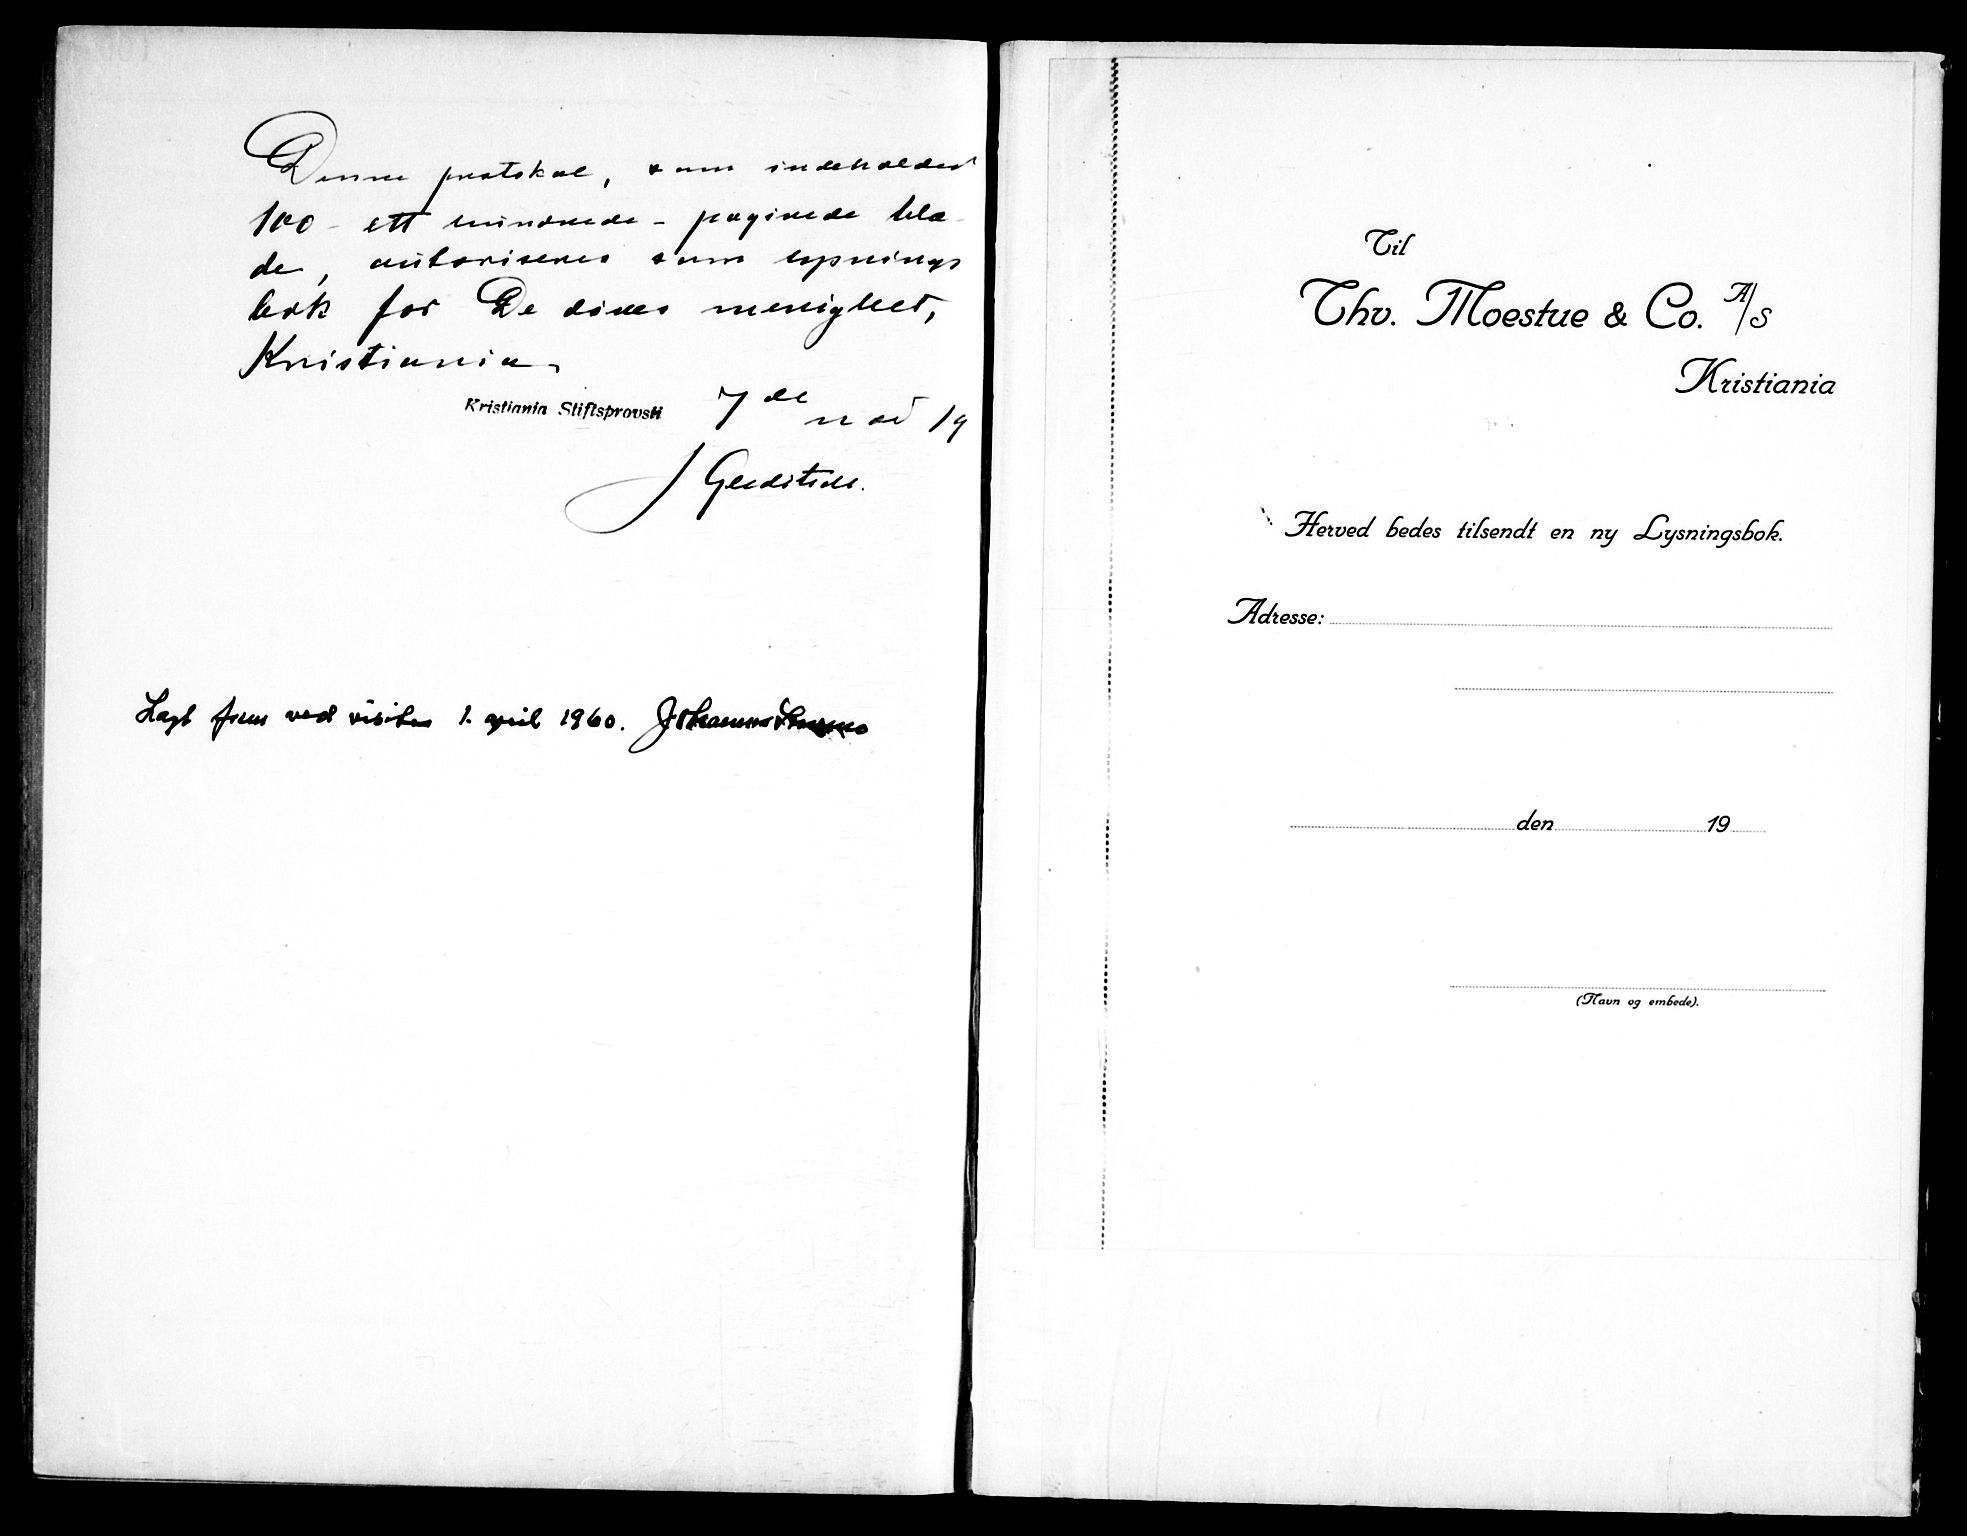 Denne protokol, som indeholder
100 - ett hundrede - paginede bla-
de, autoriseres som lysnings
bok for De døves menighet,
Kristiania.
Kristiania Stiftsprovsti 7de nov 19
J Gleditsch.
Lagt frem ved visitas 1. april 1960. Johannes
Til
Thv. Moestue & Co. A/S
Kristiania
Herved bedes tilsendt en ny Lysningsbok.
Adresse:
den 19
(Navn og embede).